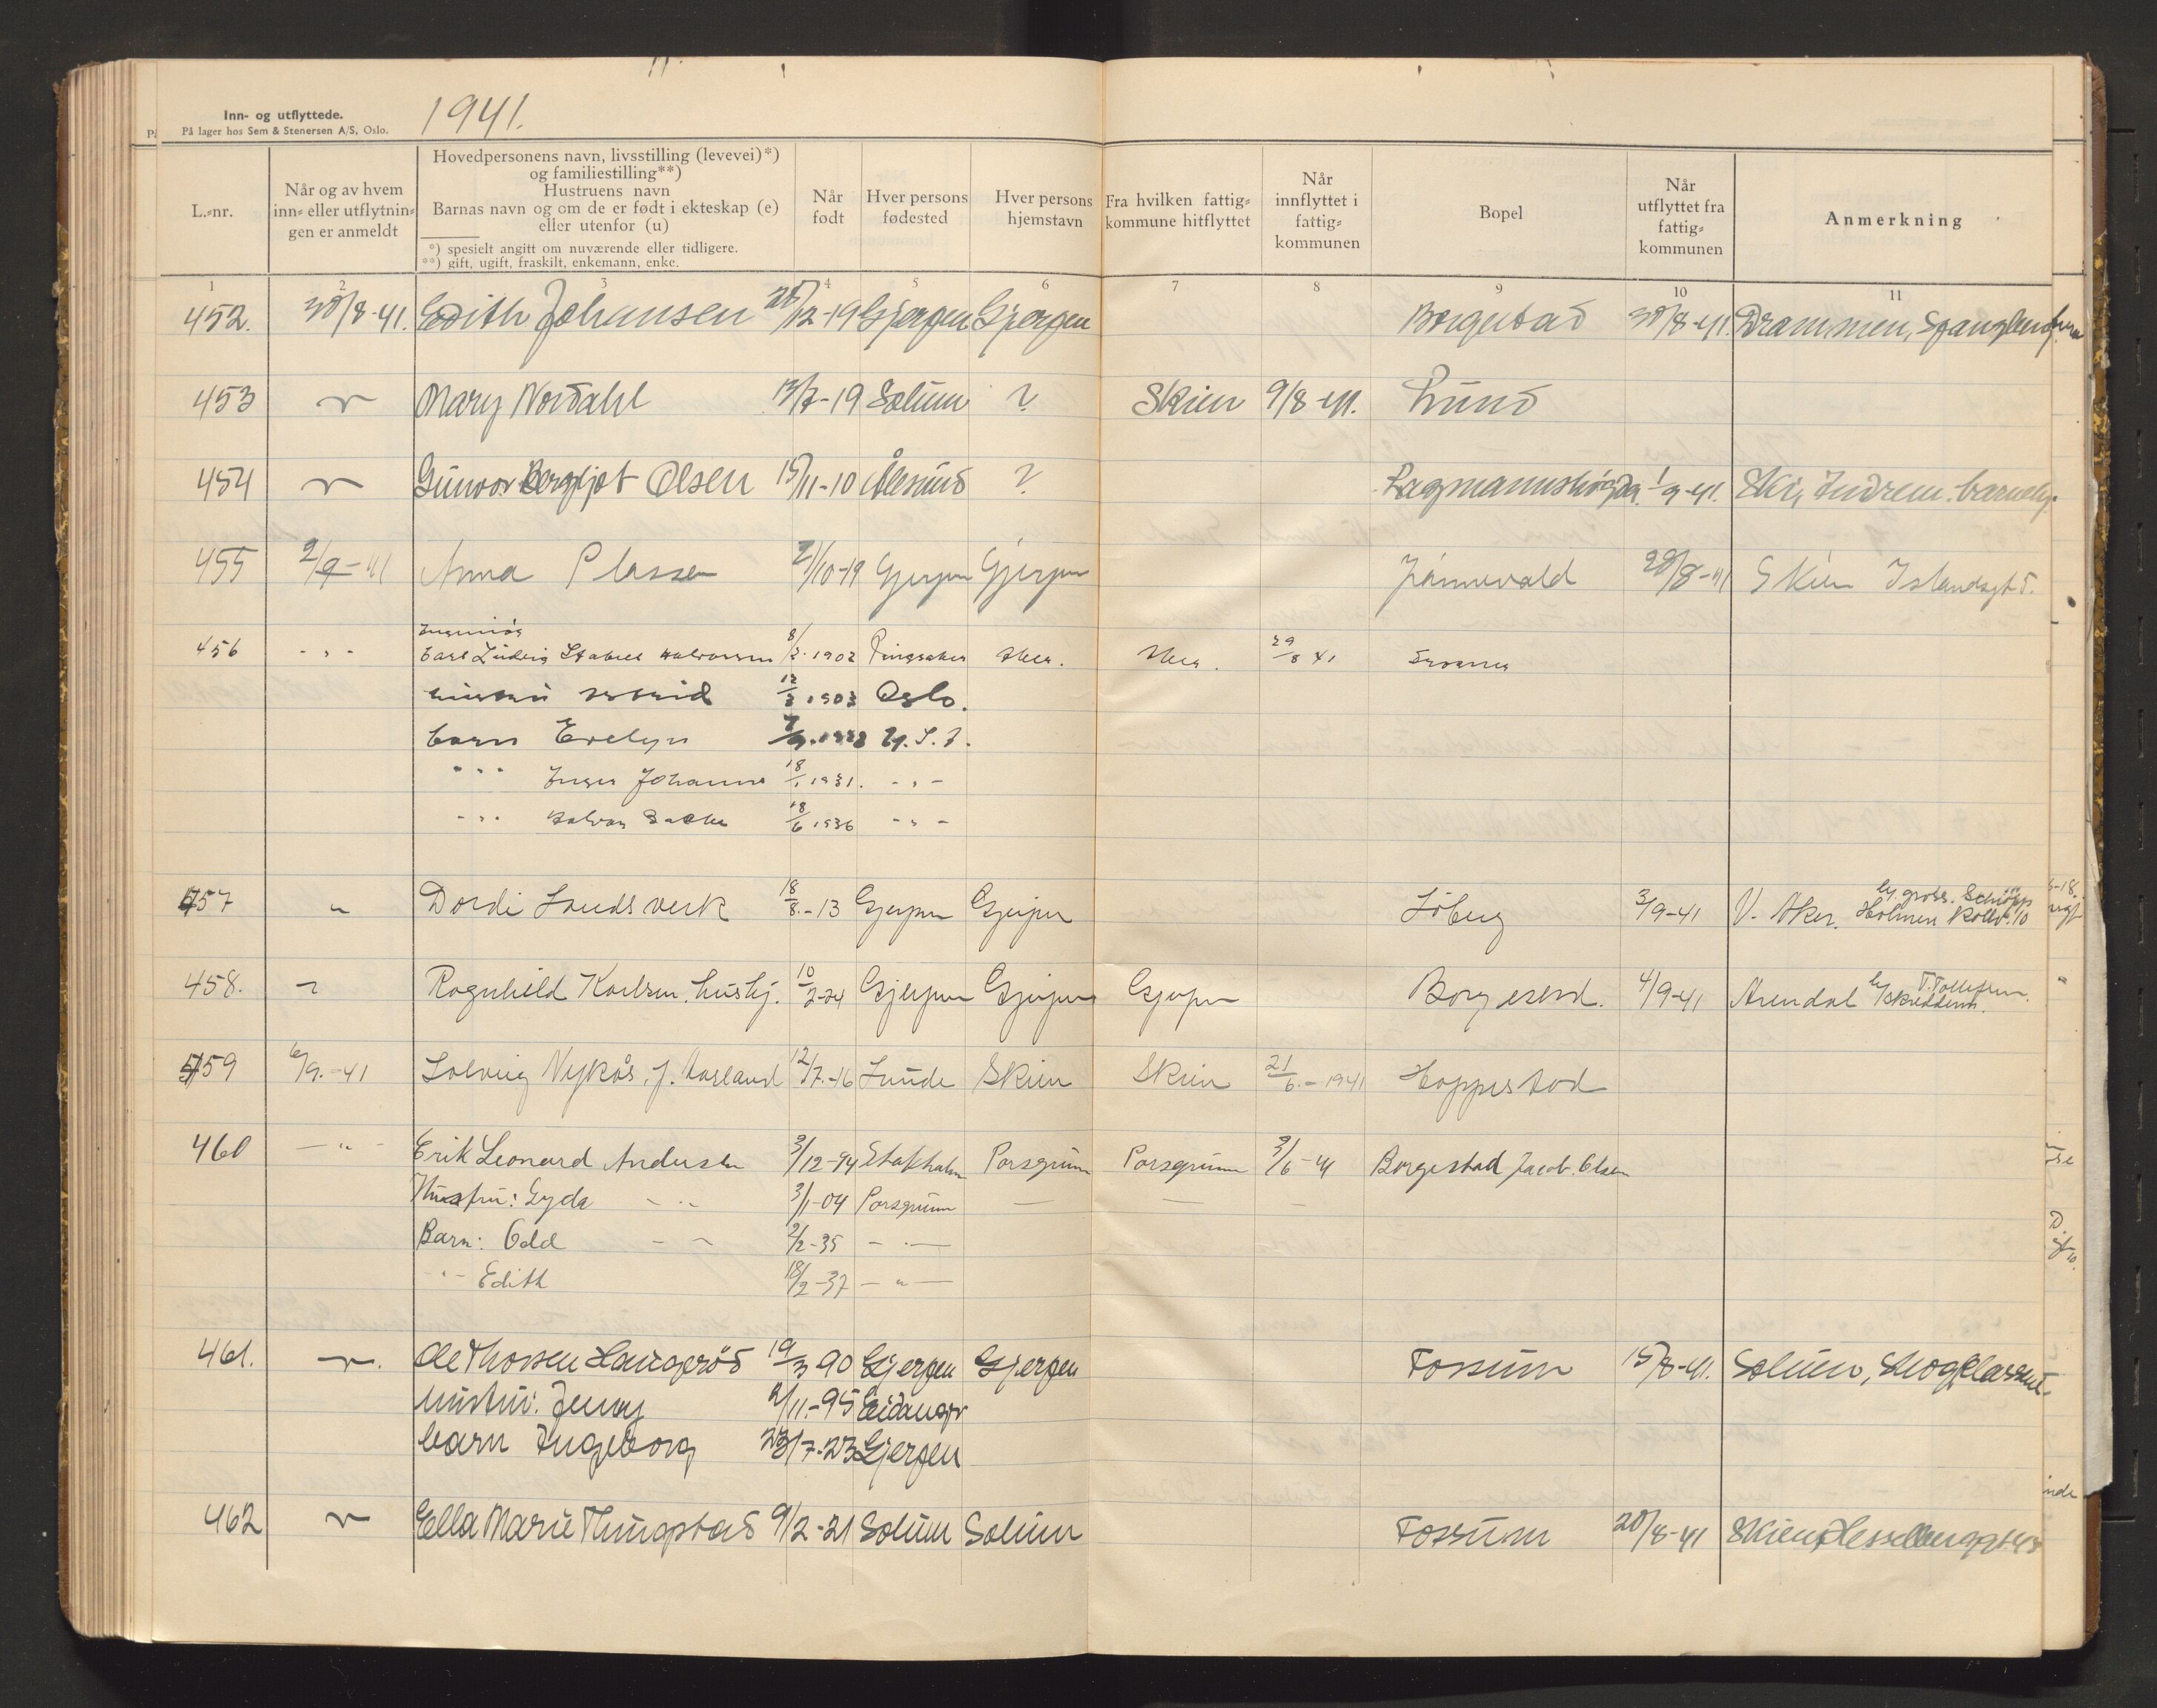 Inn- og utflyttede.
På lager hos Sem & Stenersen A/S, Oslo.
1941.
L.-nr.
Når og av hvem inn- eller utflytnin-gen er anmeldt
Hovedpersonens navn, livsstilling (levevei)*)
og familiestilling**)
Hustruens navn
Barnas navn og om de er født i ekteskap (e)
eller utenfor (u)
*) spesielt angitt om nuværende eller tidligere.
**) gift, ugift, fraskilt, enkemann, enke.
Når født
Hver persons fødested
Hver persons hjemstavn
Fra hvilken fattig-kommune hitflyttet
Når innflyttet i fattig-kommunen
Bopel
Når utflyttet fra fattig-kommunen
Anmerkning
1 2 3 4 5 6 7 8 9 10 11
452. 30/8-41. Edith Johansen /12-19 Gjerpen Gjerpen Borgestad 30/8-41. Drammen,
453 Mary Nordahl 13/7-19 Solum ? Skien 9/8-41. Lund
454 Gunvor Bergljot Olsen 15/11-10 Ålesund ? Lagmannshögda 1/9-41. Ski,
455 2/9-41 Anna Plassen 21/10-19 Gjerpen Gjerpen Jönnevald 28/8-41 Skien Islandsgt 5.
456 - " - Ingeniör
8/ 1902 Ringsaker 29/8 41
hustru Astrid 12/ 1903 Oslo.
barn Evelyn U.S.A.
" " Inger Johanne 18/1 1931. - " -
- " " 18/6 1936 - " -
457 " Dordi Landsverk 18/8.-13 Gjerpen Gjerpen Löberg 3/9-41 V. Aker. Holmen Kollv. 10
458. Ragnhild Karlsen, hushj. 10/2-24 Gjerpen Gjerpen Gjerpen Borgestad. 4/9-41 Arendal T. Tollefsen
459 6/9.-41 Solveig Nykås, f. Aasland 12/7.-16 Lunde Skien Skien 21/6.-1941 Hoppestad
460 - " - Erik Leonard Andersen 3/12-94 Stokholm Porsgrunn Porsgrunn 3/6-41 Borgestad Jacob Olsen
Husfru: Gyda - " - 3/1-04 Porsgrunn — — —
Barn: Odd - " - 2/2-35 - " -
- " - Edith 18/2-37 - " -
461. Ole Thovsen Haugerød 19/3 90 Gjerpen Gjerpen Fossum 15/8-41. Solum,
hustru: Jenny 2/11-95 Eidanger
barn Ingeborg 23/7-23 Gjerpen
462 Ella Marie 9/2-21 Solum Solum Fossum 20/8-41 Skien, Hesselbergsgt.